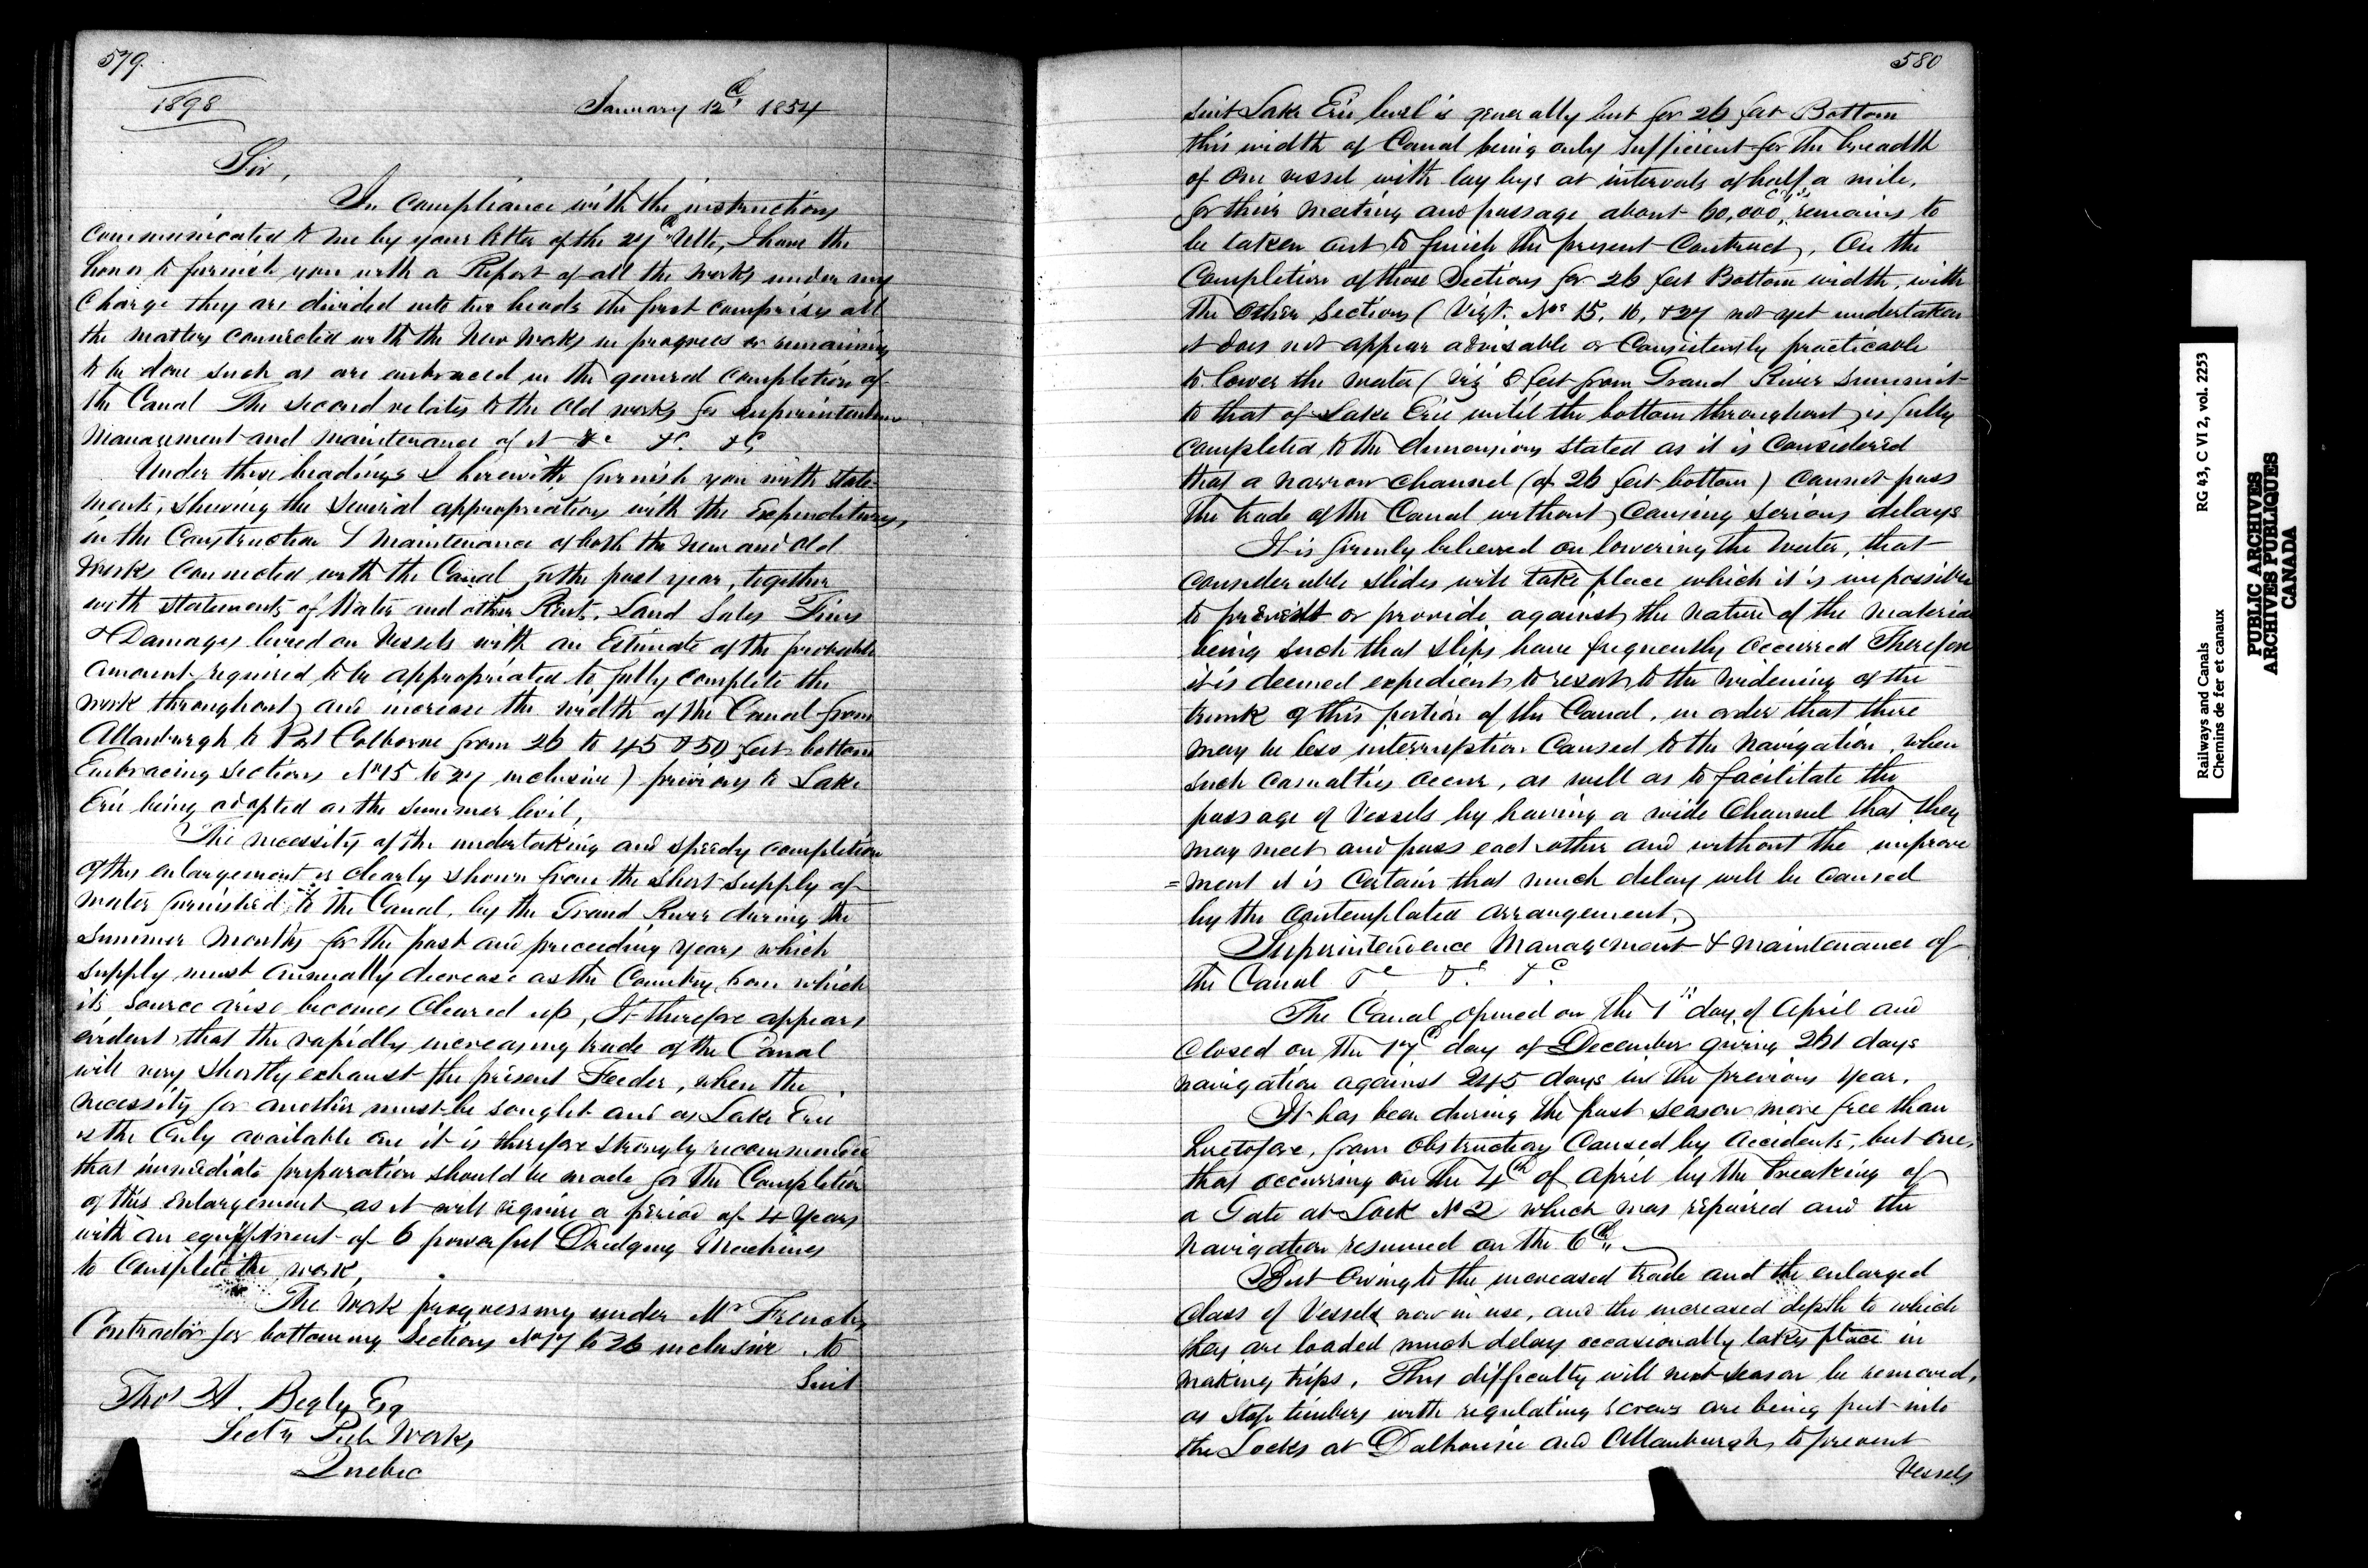 579.
1898
January 12d, 1854
Sir,
In compliance with the instructions
communicated to me by your letter of the 27d Ulto, I have the
honor to furnish you with a Report of all the works under my
Charge they are divided into two heads the first comprises all
the matters connected with the New Works in progress or remaining
to be done such as are embraced in the general completion of
the Canal The second relates to the old works for superintendence
Management and maintenance of it &c &c. &c,
Under these headings I herewith furnish you with state-
ments, shewing the several appropriations with the Expenditures,
in the Construction & maintenance of both the New and old
Works connected with the Canal for the past year, together
with statements of Water and other Rents, Land Sales Fines
& Damages levied on Vessels with an Estimate of the probable
amount required to be appropriated to fully complete the
work throughout and increase the width of the Canal from
Allanburgh to Port Colborne from 26 to 45 & 50 feet bottom
Embracing sections No 15 to 27 inclusive) previous to Lake
Erie being adopted as the summer level,
The necessity of the undertaking and speedy completion
of this enlargement is clearly shown from the short supply of
water furnished to the Canal, by the Grand River during the
summer months for the past and preceeding years which
supply must annually decrease as the Country from which
its source arise becomes cleared up, It therefore appears
evident that the rapidly increasing trade of the Canal
will very shortly exhaust the present Feeder, when the
necessity for another must be sought and as Lake Erie
is the only available one it is therefore strongly recommended
that immediate preparation should be made for the Completion
of this enlargement as it will require a period of 4 Years
with an equiptment of 6 powerful Dredging Machines
to complete the work,
The Work progressing under Mr French
Contractor for bottoming Sections No 17 to 26 inclusive to
Suit
Thos A. Begly Esq
Secty Pub Works
Quebec
580
suit Lake Erie level is generally but for 26 feet Bottom
this width of Canal being only sufficient for the breadth
of one vessel with lay bys at intervals of half a mile,
for their meeting and passage about 60,000 c. yds, remains to
be taken out to finish the present Contract, On the
Completion of those Sections for 26 feet Bottom width, with
the other sections (Vizt. Nos 15, 16, & 27 not yet undertaken
it does not appear advisable or consistently practicable
to lower the water (Viz 8 feet from Grand River summit
to that of Lake Erie until the bottom throughout is fully
completed to the dimensions stated as it is considered
that a narrow channel (of 26 feet bottom) cannot pass
the trade of the Canal without causing serious delays
It is firmly believed on lowering the Water, that
considerable slides will take place which it is impossible
to prevent or provide against the nature of the material
being such that slips have frequently occurred Therefore
it is deemed expedient to resort to the widening of the
trunk of this portion of the Canal, in order that there
may be less interruption caused to the Navigation when
such casualties occur, as well as to facilitate the
passage of Vessels by having a wide Channel that they
may meet and pass each other and without the improve
= ment it is certain that much delay will be caused
by the contemplated arrangement.
Superintendence Management & maintenance of
the Canal &c &c. &c.
The Canal opened on the 1st day of April and
closed on the 17d day of December giving 261 days
navigation against 245 days in the previous Year.
It has been during the past season more free than
heretofore, from obstructions caused by accidents, but one,
that occurring on the 4th of April by the breaking of
a Gate at Lock No 2 which was repaired and the
navigation resumed on the 6th,,
But Owing to the increased trade and the enlarged
class of Vessels now in use, and the increased depth to which
they are loaded much delay occasionally takes place in
making trips. This difficulty will next season be removed,
as Stop timbers with regulating screws are being put into
the Locks at Dalhousie and Allanburgh to prevent
Vessels
Railways and Canals
RG 43, C VI 2, vol. 2253
Chemins de fer et canaux
PUBLIC ARCHIVES
ARCHIVES PUBLIQUES
CANADA